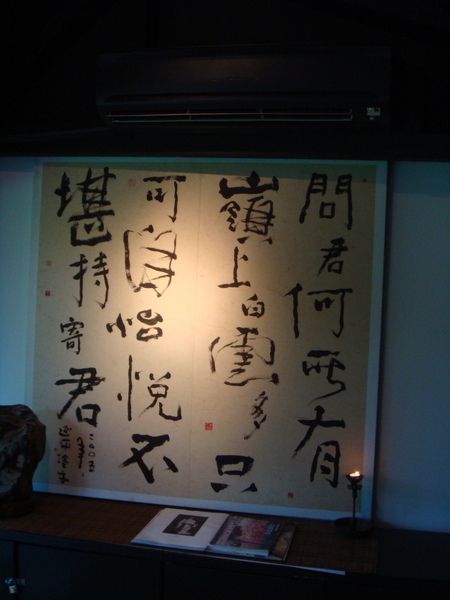 問君何所有
嶺上白雲多只
可自怡悅不
堪持寄君
二〇〇五